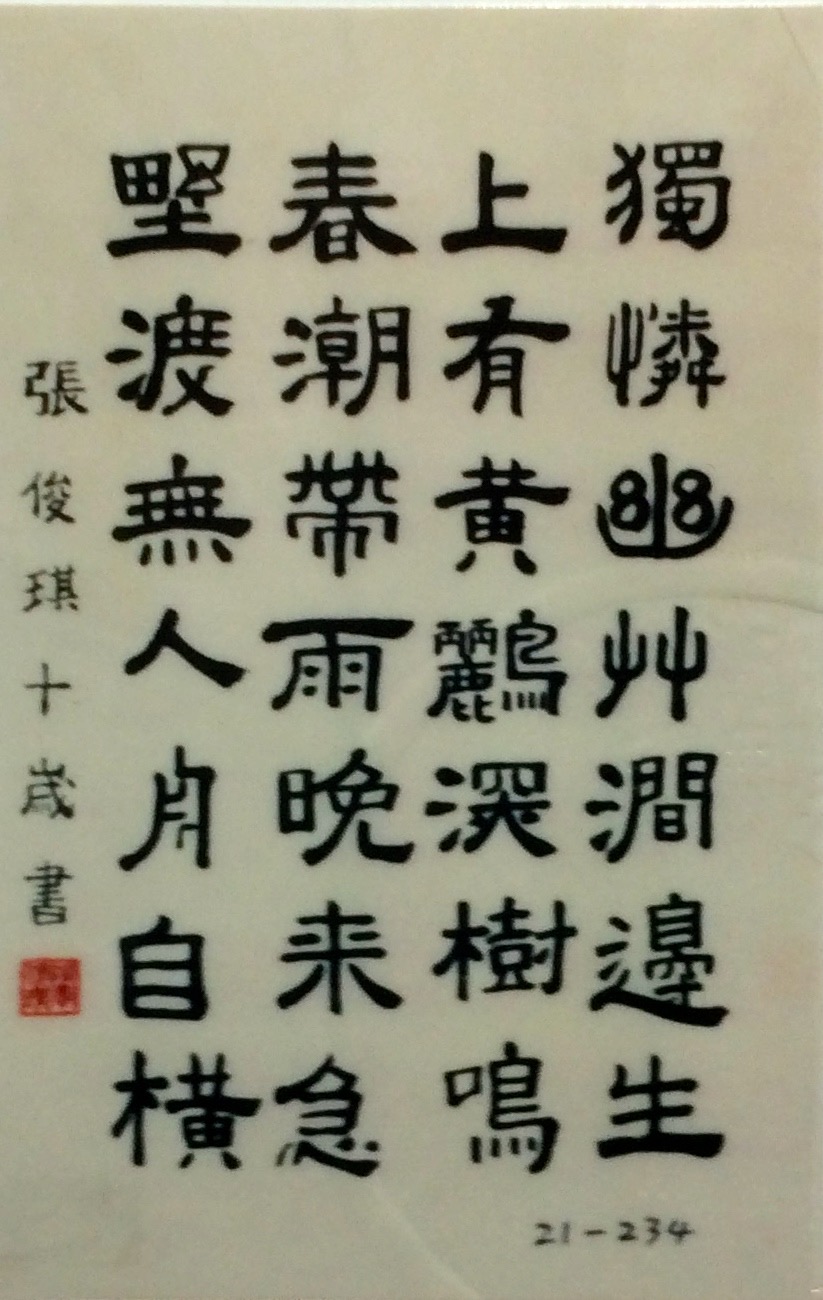 獨憐幽艸澗邊生
上有黄鸝深樹鳴
春潮帶雨晩来急
埜渡無人舟自橫
張俊琪十歲書
21-234